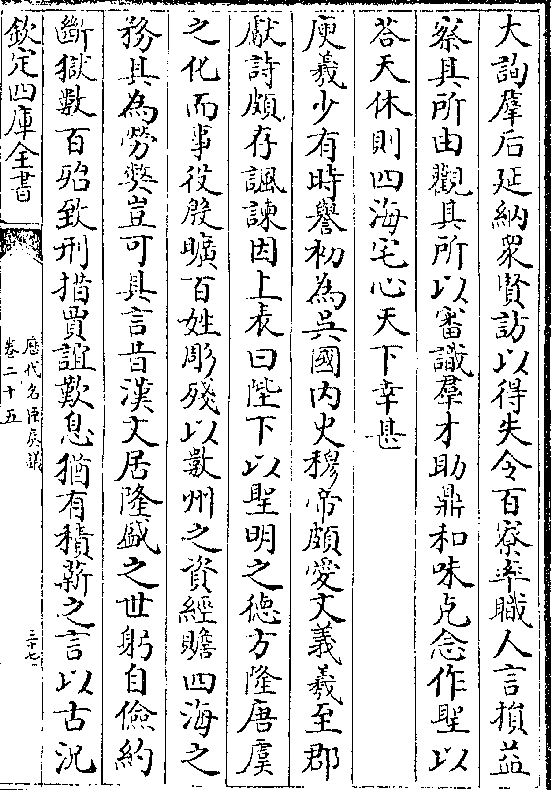 大詢羣后延納衆賢訪以得失令百寮率職人言損益
察其所由觀其所以審識羣才助鼎和味克念作聖以
荅天休則四海宅心天下幸甚
庾羲少有時譽初為吳國內史穆帝頗愛文義羲至郡
獻詩頗存諷諫因上表曰陛下以聖明之德方隆唐虞
之化而事役殷曠百姓彫殘以數州之資經贍四海之
務其為勞弊豈可具言昔漢文居隆盛之世躬自儉約
斷獄數百殆致刑措賈誼歎息猶有積薪之言以古況
欽定四庫全書
歷代名臣奏議
卷二十五
三十七